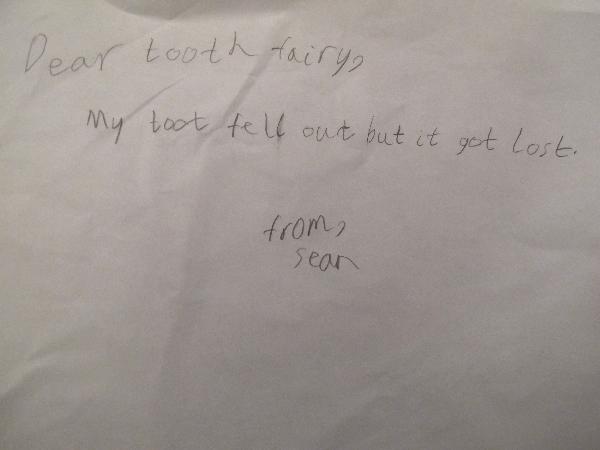 Dear tooth fairy,
My toot fell out but it got lost.
from,
sean